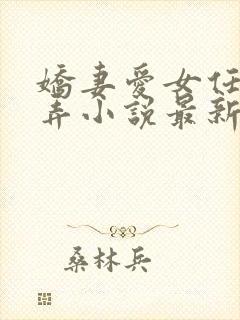 嬌妻愛女任
弄小說最新
桑林兵